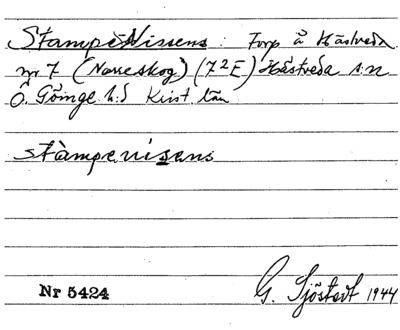 Stampe Nissens: Torp å Hästveda
nr 7 (Norreskog) (7²E) Hästveda sn
Ö. Göinge h:d Krist län
stampenisens
Nr 5424 G. Sjöstedt 1944